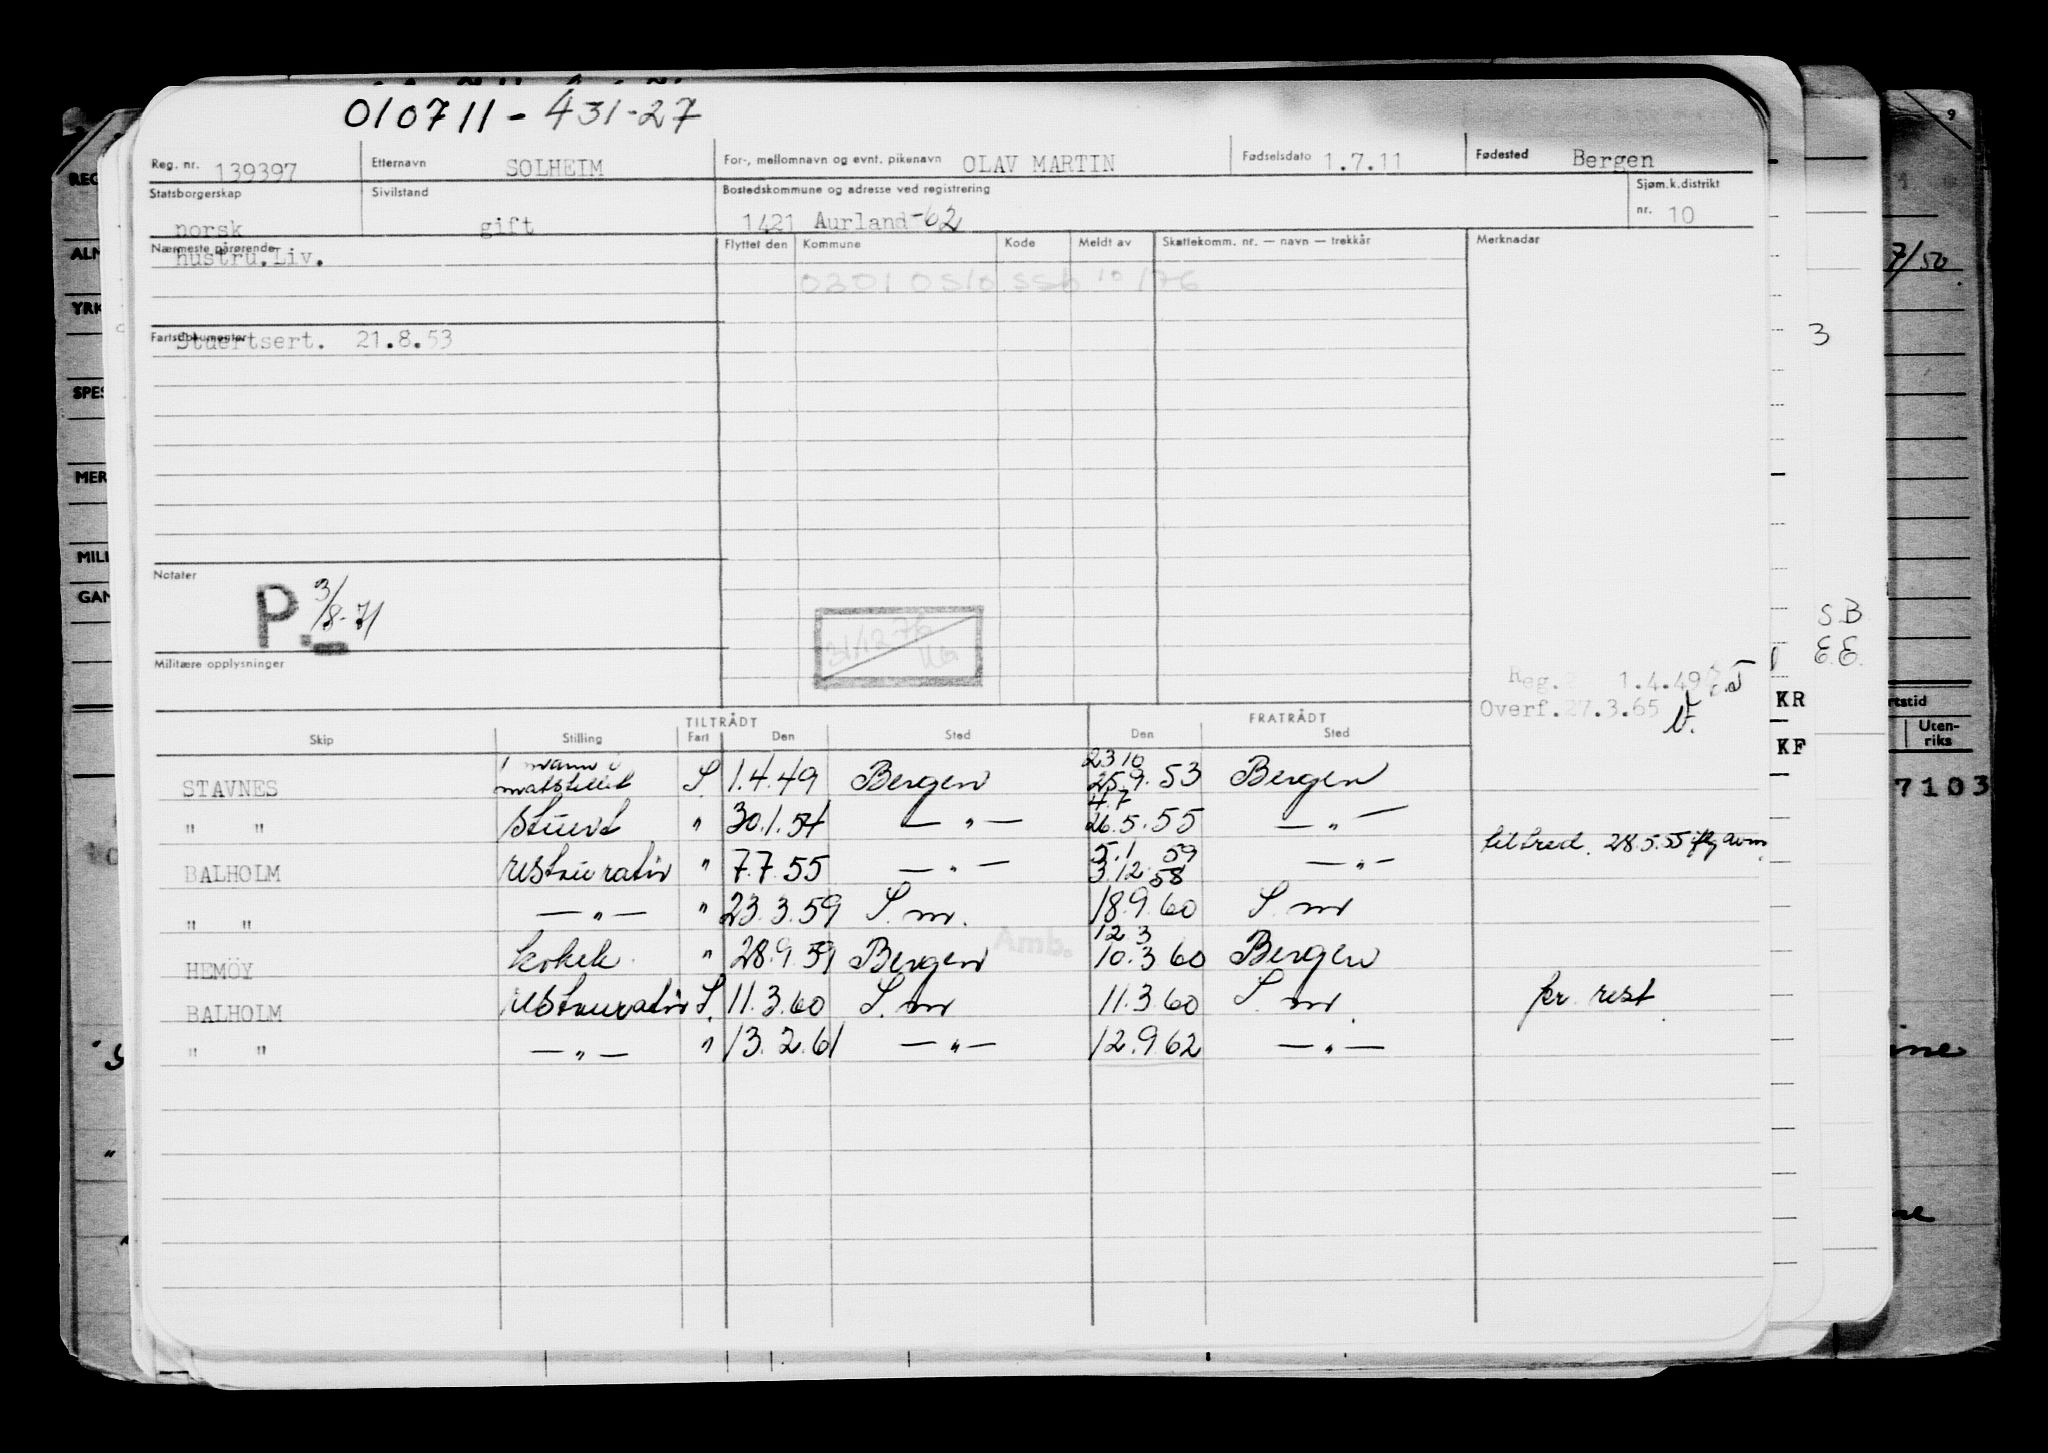 010711-431-27
Reg. nr. 139397 Etternavn SOLHEIM For-, mellomnavn og evnt. pikenavn OLAV MARTIN Fødselsdato 1.7.11 Fødested Bergen
Statsborgerskap Sivilstand Bostedskommune og adresse ved registrering Sjøm.k.distrikt
norsk gift 1421 Aurland-62 nr. 10
Nærmeste pårørende Flyttet den Kommune Kode Meldt av Skattekomm. nr. — navn — trekkår Merknader
hustru.Liv.
0301 Oslo SSB 10/76
Fartsdokumenter
Stuertsert. 21.8.53
Notater
P. 3/8-71
31/12-76
Militære opplysninger
Reg. 1.4.49
Overf. 27.3.65
TILTRÅDT FRATRÅDT
Skip Stilling Fart Den Sted Den Sted
1 mann i 23 10
STAVNES matstellet S. 1.4.49 Bergen 25.9.53 Bergen
4.7
" " Stuert " 30.1.54 — " — 26.5.55 — " —
tiltred. 28.5.55
5.1 59
BALHOLM restauratør " 7.7.55 — " — 3.12.58 — " —
" " — " — " 23.3.59 S. m. 18.9.60 S. m
Amb. 12 3
HEMÖY kokk " 28.9.59 Bergen 10.3 60 Bergen
BALHOLM restauratør S. 11.3.60 S. m 11.3.60 S. m. pr. rest.
" " — " — " 13.2.61 — " — 12.9.62 — " —
REG
ALM
YRK
SPES
MER
MILI
GAN
9
7/50
3
S.B
E.E.
KR
KF
rtstid
Uten-
riks
7103